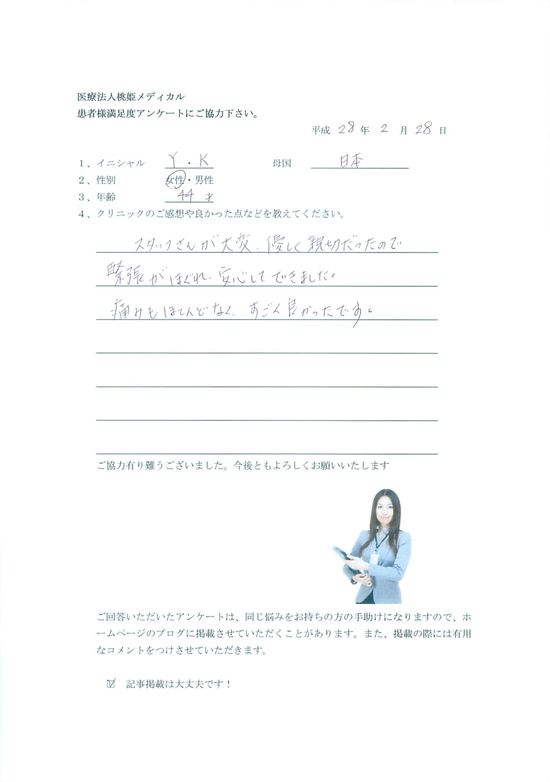 医療法人桃姫メディカル
患者様満足度アンケートにご協力下さい。
平成 28 年 2 月 28 日
1、イニシャル Y・K 母国 日本
2、性別 女性・男性
3、年齢 44 才
4、クリニックのご感想や良かった点などを教えてください。
スタッフさんが大変、優しく親切だったので
緊張がほぐれ、安心してできました。
痛みもほとんどなく、すごく良かったです。
ご協力有り難うございました。今後ともよろしくお願いいたします
ご回答いただいたアンケートは、同じ悩みをお持ちの方の手助けになりますので、ホ
ームページのブログに掲載させていただくことがあります。また、掲載の際には有用
なコメントをつけさせていただきます。
☑ 記事掲載は大丈夫です！